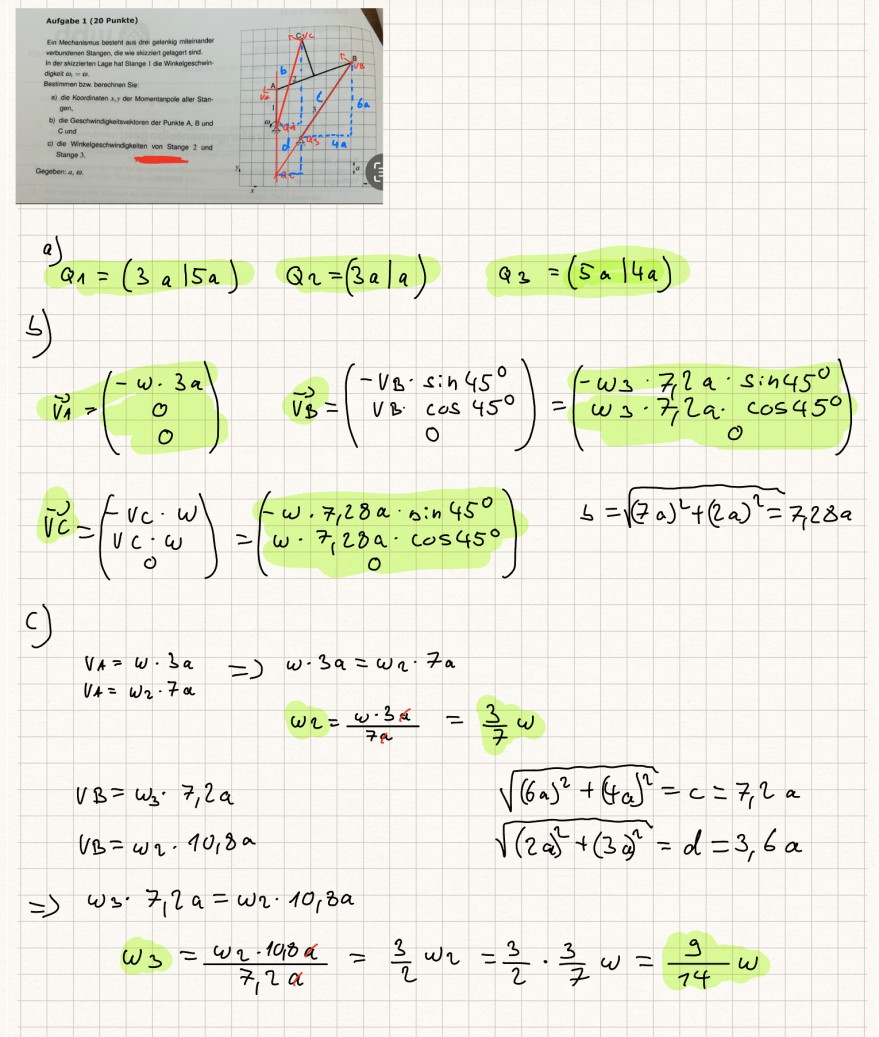 Aufgabe 1 (20 Punkte)
Ein Mechanismus besteht aus drei gelenkig miteinander
verbundenen Stangen, die wie skizziert gelagert sind.
In der skizzierten Lage hat Stange 1 die Winkelgeschwin-
digkeit ω₁ = ω.
Bestimmen bzw. berechnen Sie:
a) die Koordinaten x, y der Momentanpole aller Stan-
gen,
b) die Geschwindigkeitsvektoren der Punkte A, B und
C und
c) die Winkelgeschwindigkeiten von Stange 2 und
Stange 3.
Gegeben: a, ω.
C VC
B
VB
b
A
VA
2
c
6a
1
3
Q1
d
Q3
4a
a
x
a)
Q1 = (3a|5a) Q2 = (3a|a) Q3 = (5a|4a)
b)
V⃗A = (-ω · 3a; 0; 0) V⃗B = (-VB · sin45°; VB · cos 45°; 0) = (-ω3 · 7,2a · sin45°; ω3 · 7,2a · cos45°; 0)
V⃗C = (-VC · ω; VC · ω; 0) = (-ω · 7,28a · sin45°; ω · 7,28a · cos45°; 0) b = √(7a)²+(2a)² = 7,28a
c)
VA = ω · 3a => ω · 3a = ω2 · 7a
VA = ω2 · 7a
ω2 = ω · 3a / 7a = 3/7 ω
VB = ω3 · 7,2a √(6a)² + (4a)² = c = 7,2 a
VB = ω2 · 10,8a √(2a)² + (3a)² = d = 3,6 a
=> ω3 · 7,2a = ω2 · 10,8a
ω3 = ω2 · 10,8 a / 7,2 a = 3/2 ω2 = 3/2 · 3/7 ω = 9/14 ω